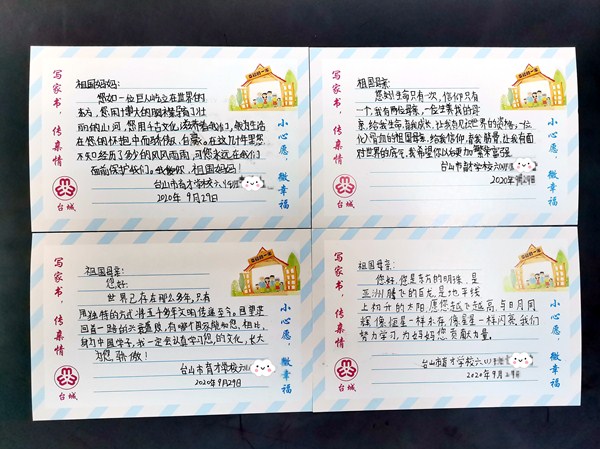 写家书，传亲情
祖国妈妈：
您如一位巨人屹立在世界的
东方，您用博大的胸襟孕育了壮
丽的山河，您用千古文化滋养着我们，我为生活
在您的怀抱中而骄傲、自豪。在这几十年里，您
不知经历了多少的风风雨雨，可您永远在我们
面前保护我们。我爱你，祖国妈妈！
台山市育才学校六
2020年9月29日
小心愿，微幸福
台城
写家书，传亲情
祖国母亲：
您好！生命只有一次，信仰只有
一个，我有两位母亲，一位生养我的母
亲，给我生命，育我成长，让我有见世界的资格，一位
祖国母亲，给我信仰，育我
对世界的底气，我希望你以后更加繁荣富强
台山市育才学校六
2020年9月29日
小心愿，微幸福
台城
写家书，传亲情
祖国母亲：
您好！
世界已存在那么多年，只有
用独特的方式将五千多年文明传连至今。
回首一路的
身为中国学子，一定会认真学习您的文化，长大
为您骄傲！
台山市育才学校六
2020年9月29日
小心愿，微幸福
台城
写家书，传亲情
祖国母亲：
您好，您是东方的明珠，是
亚洲腾飞的巨龙，是地平线
上初升的太阳，愿您越飞越高，与日月同
辉，像恒星一样永存，像星星一样闪亮，我们
努力学习，为好妈妈您贡献力量。
台山市育才学校六
2020年9月29日
小心愿，微幸福
台城